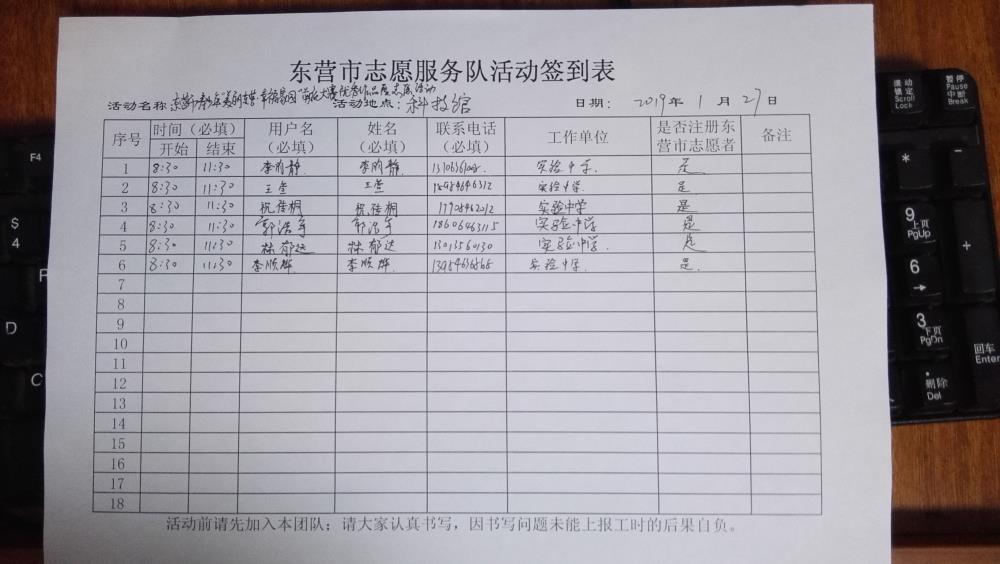 东营市志愿服务队活动签到表
活动名称: 幸福家园 大赛优秀作品展志愿活动 活动地点: 科技馆 日期: 2019年 1月 27日
序号 时间(必填) 用户名 姓名 联系电话 工作单位 是否注册东 备注
开始 结束 (必填) (必填) (必填) 营市志愿者
1 8:30 11:30 静 静 实验中学 是
2 8:30 11:30 王 王 实验中学 是
3 8:30 11:30 祝 桐 祝 桐 实验中学 是
4 8:30 11:30 郭浩 郭浩 18606463115 实验中学 是
5 8:30 11:30 林郁达 林郁达 实验中学 是
6 8:30 11:30 李顺 李顺 实验中学 是
7
8
9
10
11
12
13
14
15
16
17
18
活动前请先加入本团队;请大家认真书写,因书写问题未能上报工时的后果自负。
F4
$
4
D
滚动
锁定
Scroll
Lock
暂停
Pause
中断
Break
*
-
9
上页
PgUp
+
6
→
3
下页
PgDn
回车
Enter
.
删除
Del